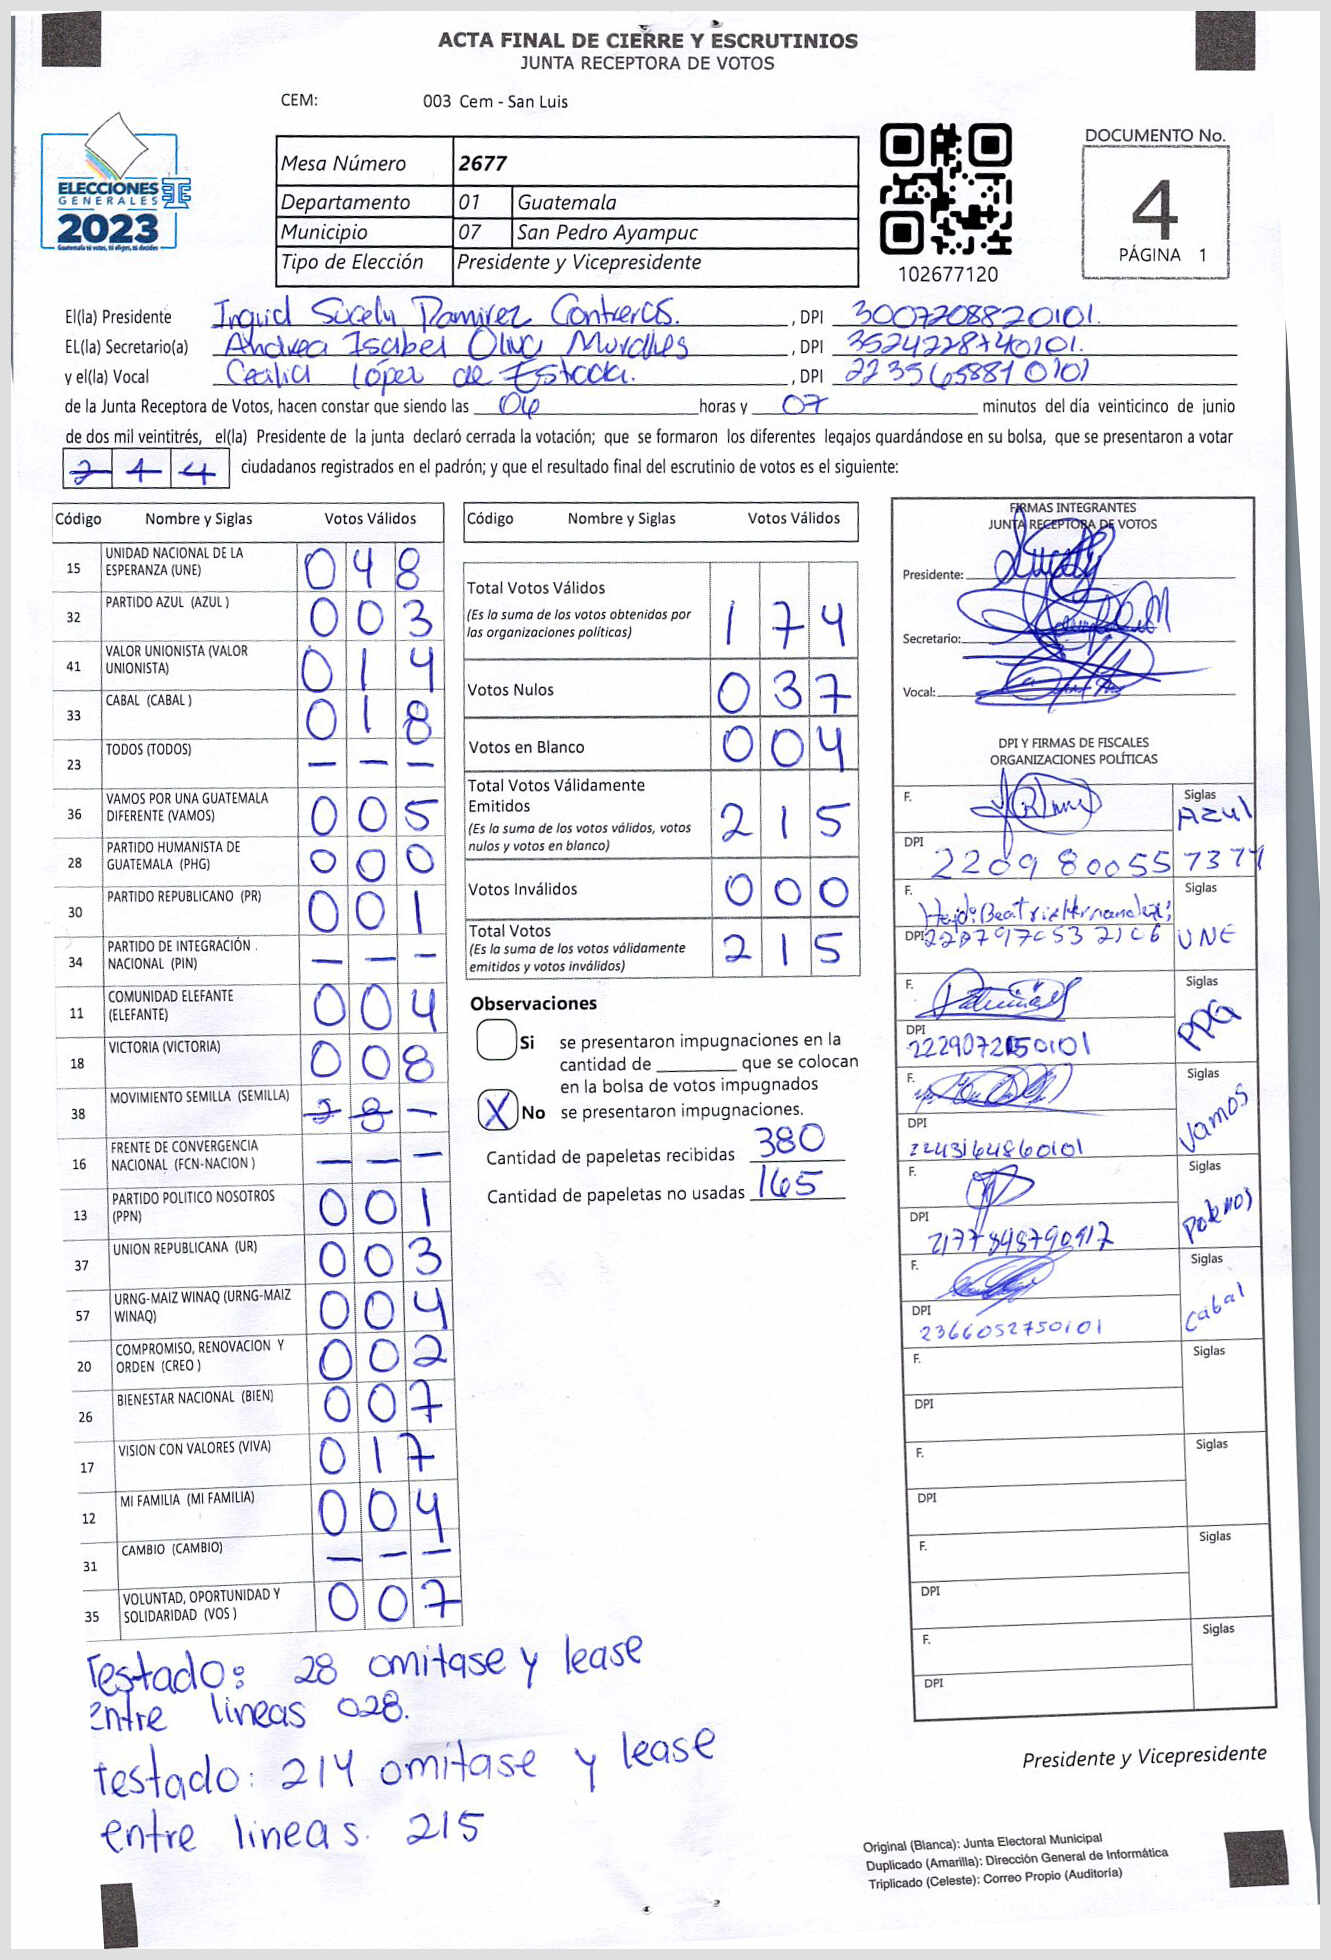 ACTA FINAL DE CIERRE Y ESCRUTINIOS
JUNTA RECEPTORA DE VOTOS
CEM: 003 Cem - San Luis
ELECCIONES
GENERALES
2023
Guatemala tú votas, tú eliges, tú decides
Mesa Número 2677
Departamento 01 Guatemala
Municipio 07 San Pedro Ayampuc
Tipo de Elección Presidente y Vicepresidente
102677120
DOCUMENTO No.
4
PÁGINA 1
El(la) Presidente Ingrid Sucely Ramirez Contreras. , DPI 3007208820101.
EL(la) Secretario(a) Andrea Isabel Oliva Morales , DPI 3524228740101.
y el(la) Vocal Cecilia López de Estrada. , DPI 2235658870101
de la Junta Receptora de Votos, hacen constar que siendo las 06 horas y 07 minutos del día veinticinco de junio
de dos mil veintitrés, el(la) Presidente de la junta declaró cerrada la votación; que se formaron los diferentes legajos guardándose en su bolsa, que se presentaron a votar
244 ciudadanos registrados en el padrón; y que el resultado final del escrutinio de votos es el siguiente:
Código Nombre y Siglas Votos Válidos
15 UNIDAD NACIONAL DE LA ESPERANZA (UNE) 048
32 PARTIDO AZUL (AZUL ) 003
41 VALOR UNIONISTA (VALOR UNIONISTA) 014
33 CABAL (CABAL ) 018
23 TODOS (TODOS) - - -
36 VAMOS POR UNA GUATEMALA DIFERENTE (VAMOS) 005
28 PARTIDO HUMANISTA DE GUATEMALA (PHG) 000
30 PARTIDO REPUBLICANO (PR) 001
34 PARTIDO DE INTEGRACIÓN NACIONAL (PIN) - - -
11 COMUNIDAD ELEFANTE (ELEFANTE) 004
18 VICTORIA (VICTORIA) 008
38 MOVIMIENTO SEMILLA (SEMILLA) 28 -
16 FRENTE DE CONVERGENCIA NACIONAL (FCN-NACION ) - - -
13 PARTIDO POLITICO NOSOTROS (PPN) 001
37 UNION REPUBLICANA (UR) 003
57 URNG-MAIZ WINAQ (URNG-MAIZ WINAQ) 004
20 COMPROMISO, RENOVACION Y ORDEN (CREO ) 002
26 BIENESTAR NACIONAL (BIEN) 007
17 VISION CON VALORES (VIVA) 017
12 MI FAMILIA (MI FAMILIA) 004
31 CAMBIO (CAMBIO) - - -
35 VOLUNTAD, OPORTUNIDAD Y SOLIDARIDAD (VOS ) 007
Testado: 28 omitase y lease
Entre lineas 028.
testado: 214 omitase y lease
entre lineas. 215
Código Nombre y Siglas Votos Válidos
Total Votos Válidos 174
(Es la suma de los votos obtenidos por
las organizaciones políticas)
Votos Nulos 037
Votos en Blanco 004
Total Votos Válidamente
Emitidos 215
(Es la suma de los votos válidos, votos
nulos y votos en blanco)
Votos Inválidos 000
Total Votos 215
(Es la suma de los votos válidamente
emitidos y votos inválidos)
Observaciones
Si se presentaron impugnaciones en la
cantidad de ________ que se colocan
en la bolsa de votos impugnados
X No se presentaron impugnaciones.
Cantidad de papeletas recibidas 380
Cantidad de papeletas no usadas 165
FIRMAS INTEGRANTES
JUNTA RECEPTORA DE VOTOS
Presidente:
Secretario:
Vocal:
DPI Y FIRMAS DE FISCALES
ORGANIZACIONES POLÍTICAS
F. Siglas Azul
DPI 2209 80055 7371
F. Heidi Beatriz Hernandez Siglas UNE
DPI 2207970532106
F. Siglas PPG
DPI 2229072150101
F. Siglas Vamos
DPI 2243164860101
F. Siglas Podemos
DPI 2177898790917
F. Siglas Cabal
DPI 2366052750101
F. Siglas
DPI
F. Siglas
DPI
F. Siglas
DPI
F. Siglas
DPI
Presidente y Vicepresidente
Original (Blanca): Junta Electoral Municipal
Duplicado (Amarilla): Dirección General de Informática
Triplicado (Celeste): Correo Propio (Auditoría)